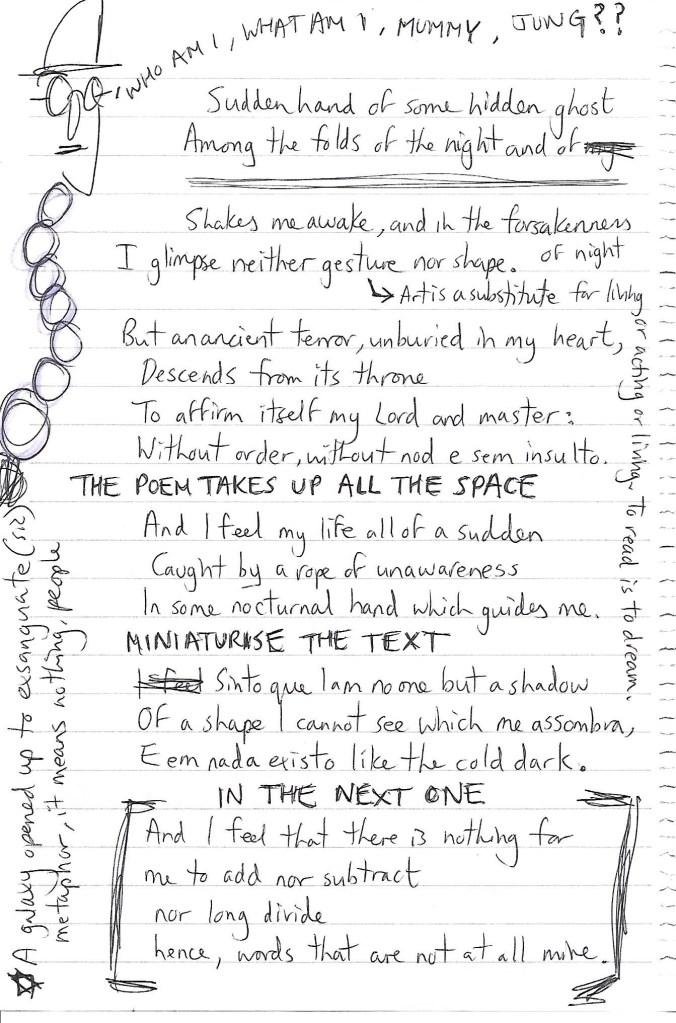 WHO AM I, WHAT AM I, MUMMY, JUNG??
Sudden hand of some hidden ghost
Among the folds of the night and of my
Shakes me awake, and in the forsakenness
of night
I glimpse neither gesture nor shape.
Art is a substitute for living
or acting or living, to read is to dream.
But an ancient terror, unburied in my heart,
Descends from its throne
To affirm itself my Lord and master:
Without order, without nod e sem insulto.
THE POEM TAKES UP ALL THE SPACE
And I feel my life all of a sudden
Caught by a rope of unawareness
In some nocturnal hand which guides me.
MINIATURISE THE TEXT
I feel Sinto que I am no one but a shadow
Of a shape I cannot see which me assombra,
E em nada existo like the cold dark.
IN THE NEXT ONE
And I feel that there is nothing for
me to add nor subtract
nor long divide
hence, words that are not at all mine.
A galaxy opened up to exsanguate (sic)
metaphor, it means nothing, people